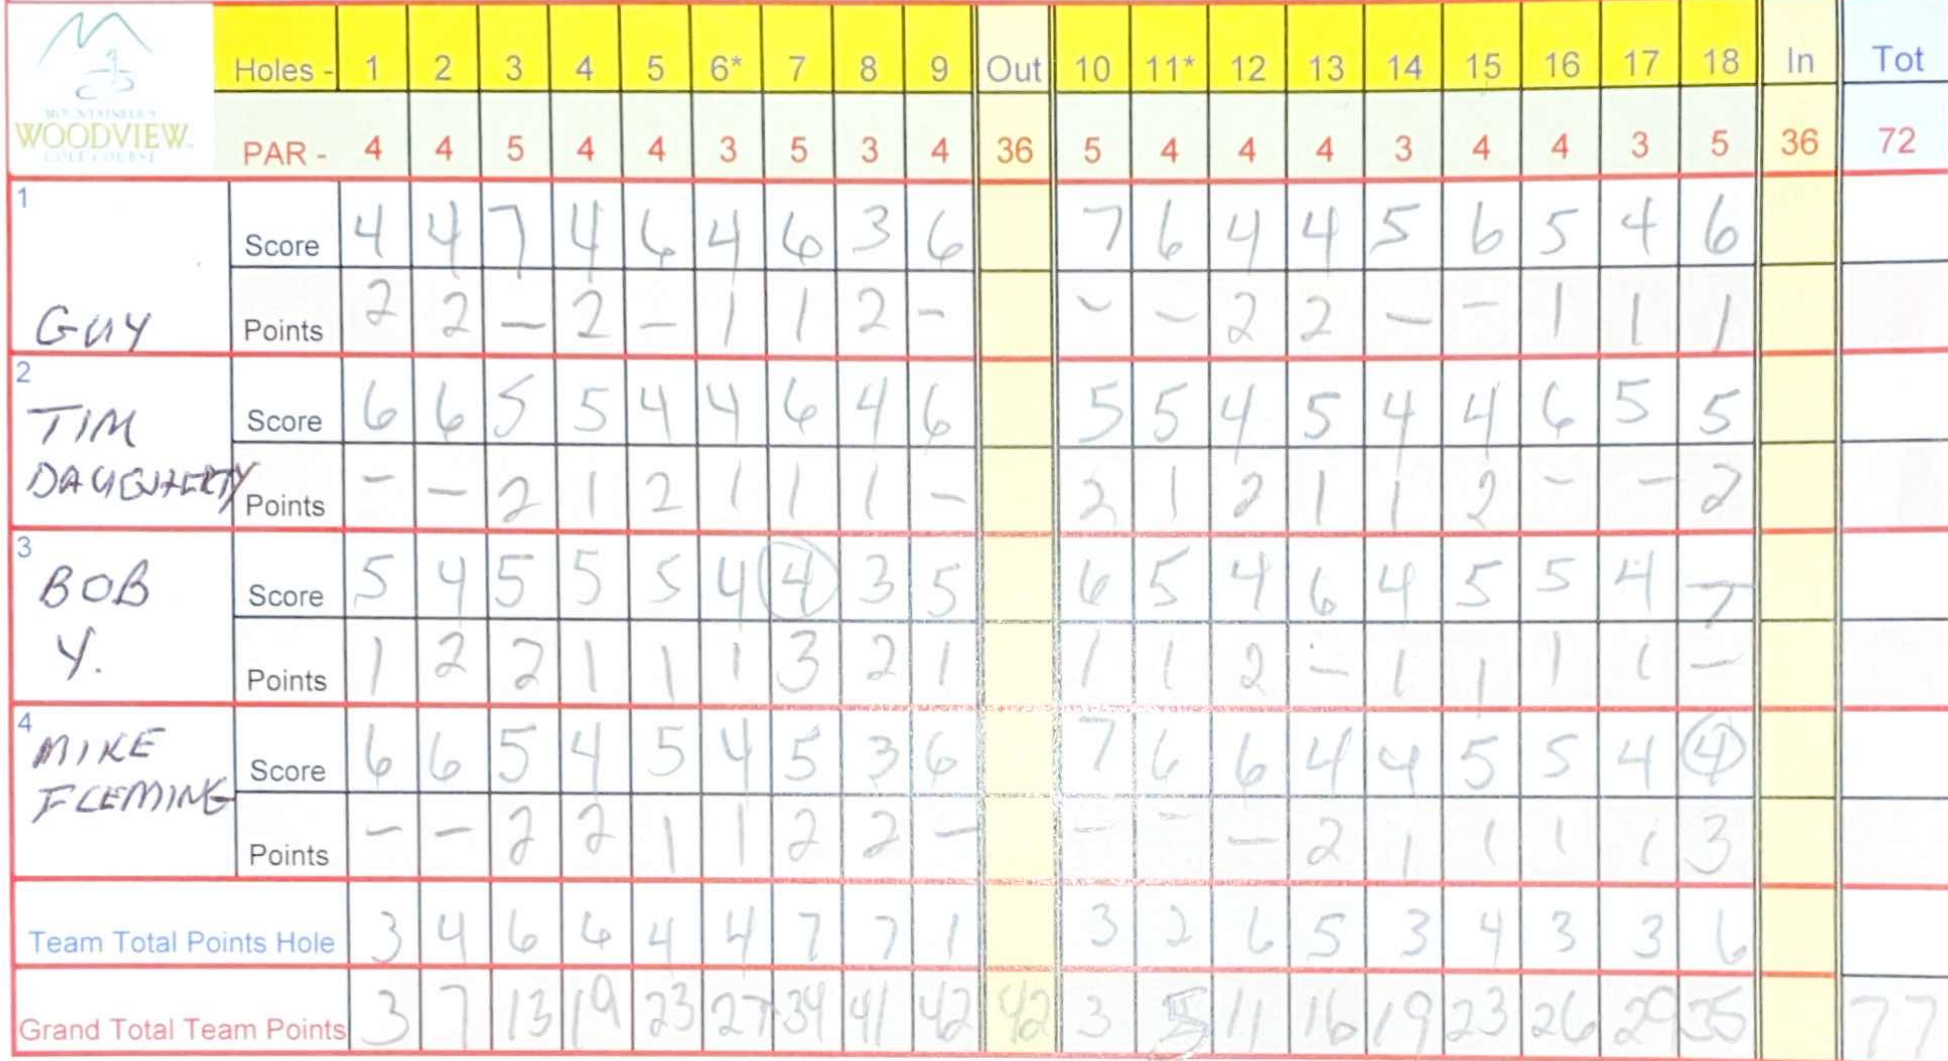 MOUNTAINEER'S
WOODVIEW
GOLF COURSE
Holes - 1 2 3 4 5 6* 7 8 9 Out 10 11* 12 13 14 15 16 17 18 In Tot
PAR - 4 4 5 4 4 3 5 3 4 36 5 4 4 4 3 4 4 3 5 36 72
1 GUY
Score 4 4 7 4 6 4 6 3 6 7 6 4 4 5 6 5 4 6
Points 2 2 - 2 - 1 1 2 - - - 2 2 - - 1 1 1
2 TIM
DAUGHERTY
Score 6 6 5 5 4 4 6 4 6 5 5 4 5 4 4 6 5 5
Points - - 2 1 2 1 1 1 - 2 1 2 1 1 2 - - 2
3 BOB
Y.
Score 5 4 5 5 5 4 4 3 5 6 5 4 6 4 5 5 4 7
Points 1 2 2 1 1 1 3 2 1 1 1 2 - 1 1 1 1 -
4 MIKE
FLEMING
Score 6 6 5 4 5 4 5 3 6 7 6 6 4 4 5 5 4 4
Points - - 2 2 1 1 2 2 - - - - 2 1 1 1 1 3
Team Total Points Hole 3 4 6 6 4 4 7 7 1 3 2 6 5 3 4 3 3 6
Grand Total Team Points 3 7 13 19 23 27 34 41 42 42 3 5 11 16 19 23 26 29 35 77